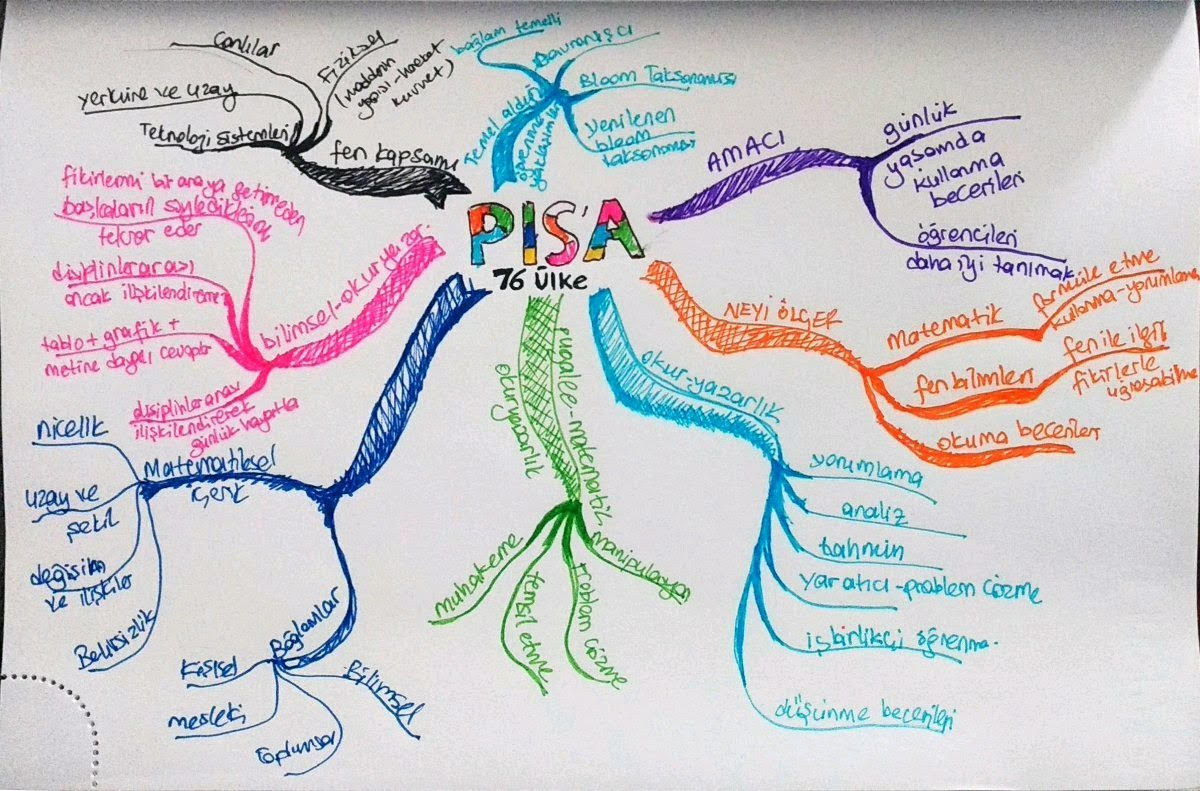 PISA
76 ÜLKE
AMACI
günlük
yaşamda
kullanma
becerileri
öğrencileri
daha iyi tanımak
NEYİ ÖLÇER
Matematik
formüle etme
kullanma-yorumlama
fen bilimleri
fen ile ilgili
fikirlerle
uğraşabilme
okuma becerileri
okur-yazarlık
yorumlama
analiz
tahmin
yaratıcı-problem çözme
işbirlikçi öğrenme.
düşünme becerileri
matematik
okuryazarlık
muhakeme
temsil etme
problem çözme
manipülasyon
Matematiksel
içerik
nicelik
uzay ve
şekil
değişim
ve ilişkiler
Belirsizlik
Bağlamlar
Kişisel
mesleki
toplumsal
Bilimsel
bilimsel-okuryazar.
fikirlerini bir araya getirmeden
başkaların söylediklerini
tekrar eder
disiplinlerarası
ancak ilişkilendirme
tablo + grafik +
metine dayalı cevaplar
disiplinlerarası
ilişkilendirerek
günlük hayatla
fen kapsamı
Canlılar
Fiziksel
(maddenin
yapısı-hareket
kuvvet)
yerküre ve uzay
Teknoloji sistemleri
Temel aldığı
öğrenme
yaklaşımları
bağlam temelli
Davranışçı
Bloom Taksonomisi
yenilenen
bloom
taksonomisi